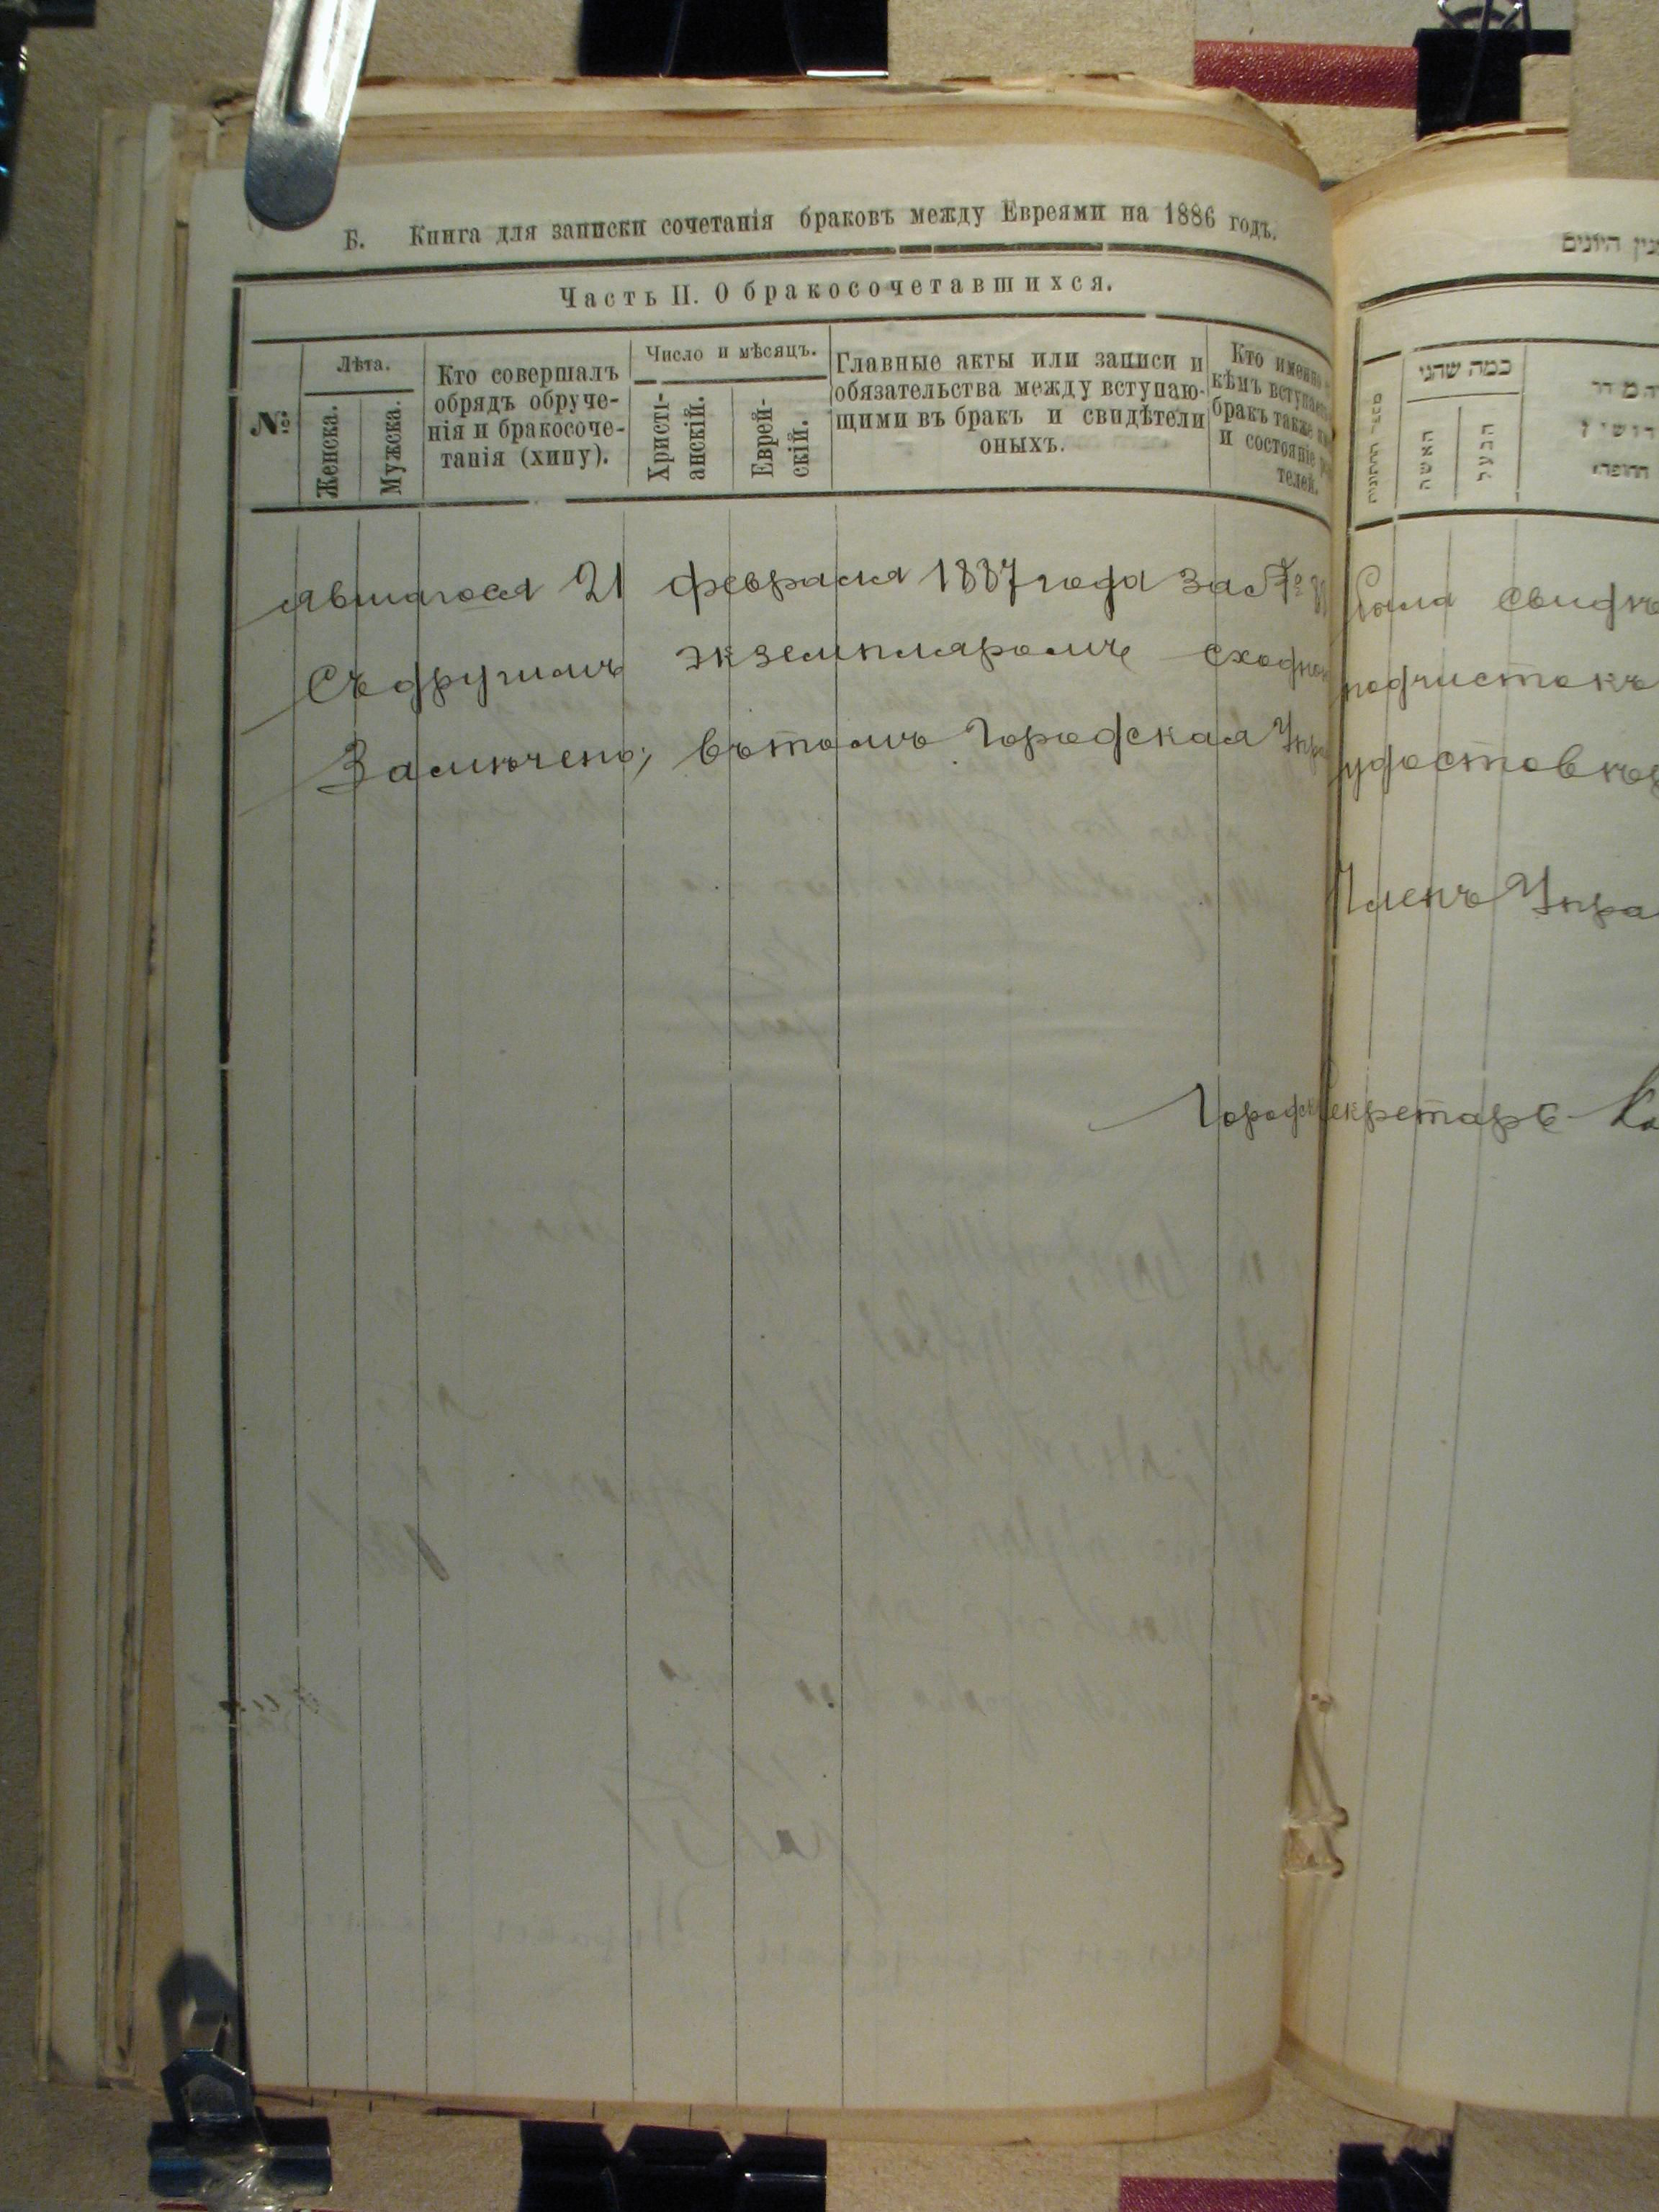 Б. Книга для записки сочетанія браковъ между Евреями на 1886 годъ.
Часть II. О бракосочетавшихся.
№
Лѣта.
Женска.
Мужска.
Кто совершалъ
обрядъ обруче-
нія и бракосоче-
танія (хипу).
Число и мѣсяцъ.
Христі-
анскій.
Еврей-
скій.
Главные акты или записи и
обязательства между вступаю-
щими въ бракъ и свидѣтели
оныхъ.
Кто именно
кѣмъ вступаетъ
бракъ также
и состояніе
телей.
явшагося 21 февраля 1887 года за №
съ другимъ экземпляромъ сходно
Замѣчено; въ томъ Городская Упра
כמה שהני
האשה
הבעל
подчистокъ
Членъ Упра
Городск Секретарь